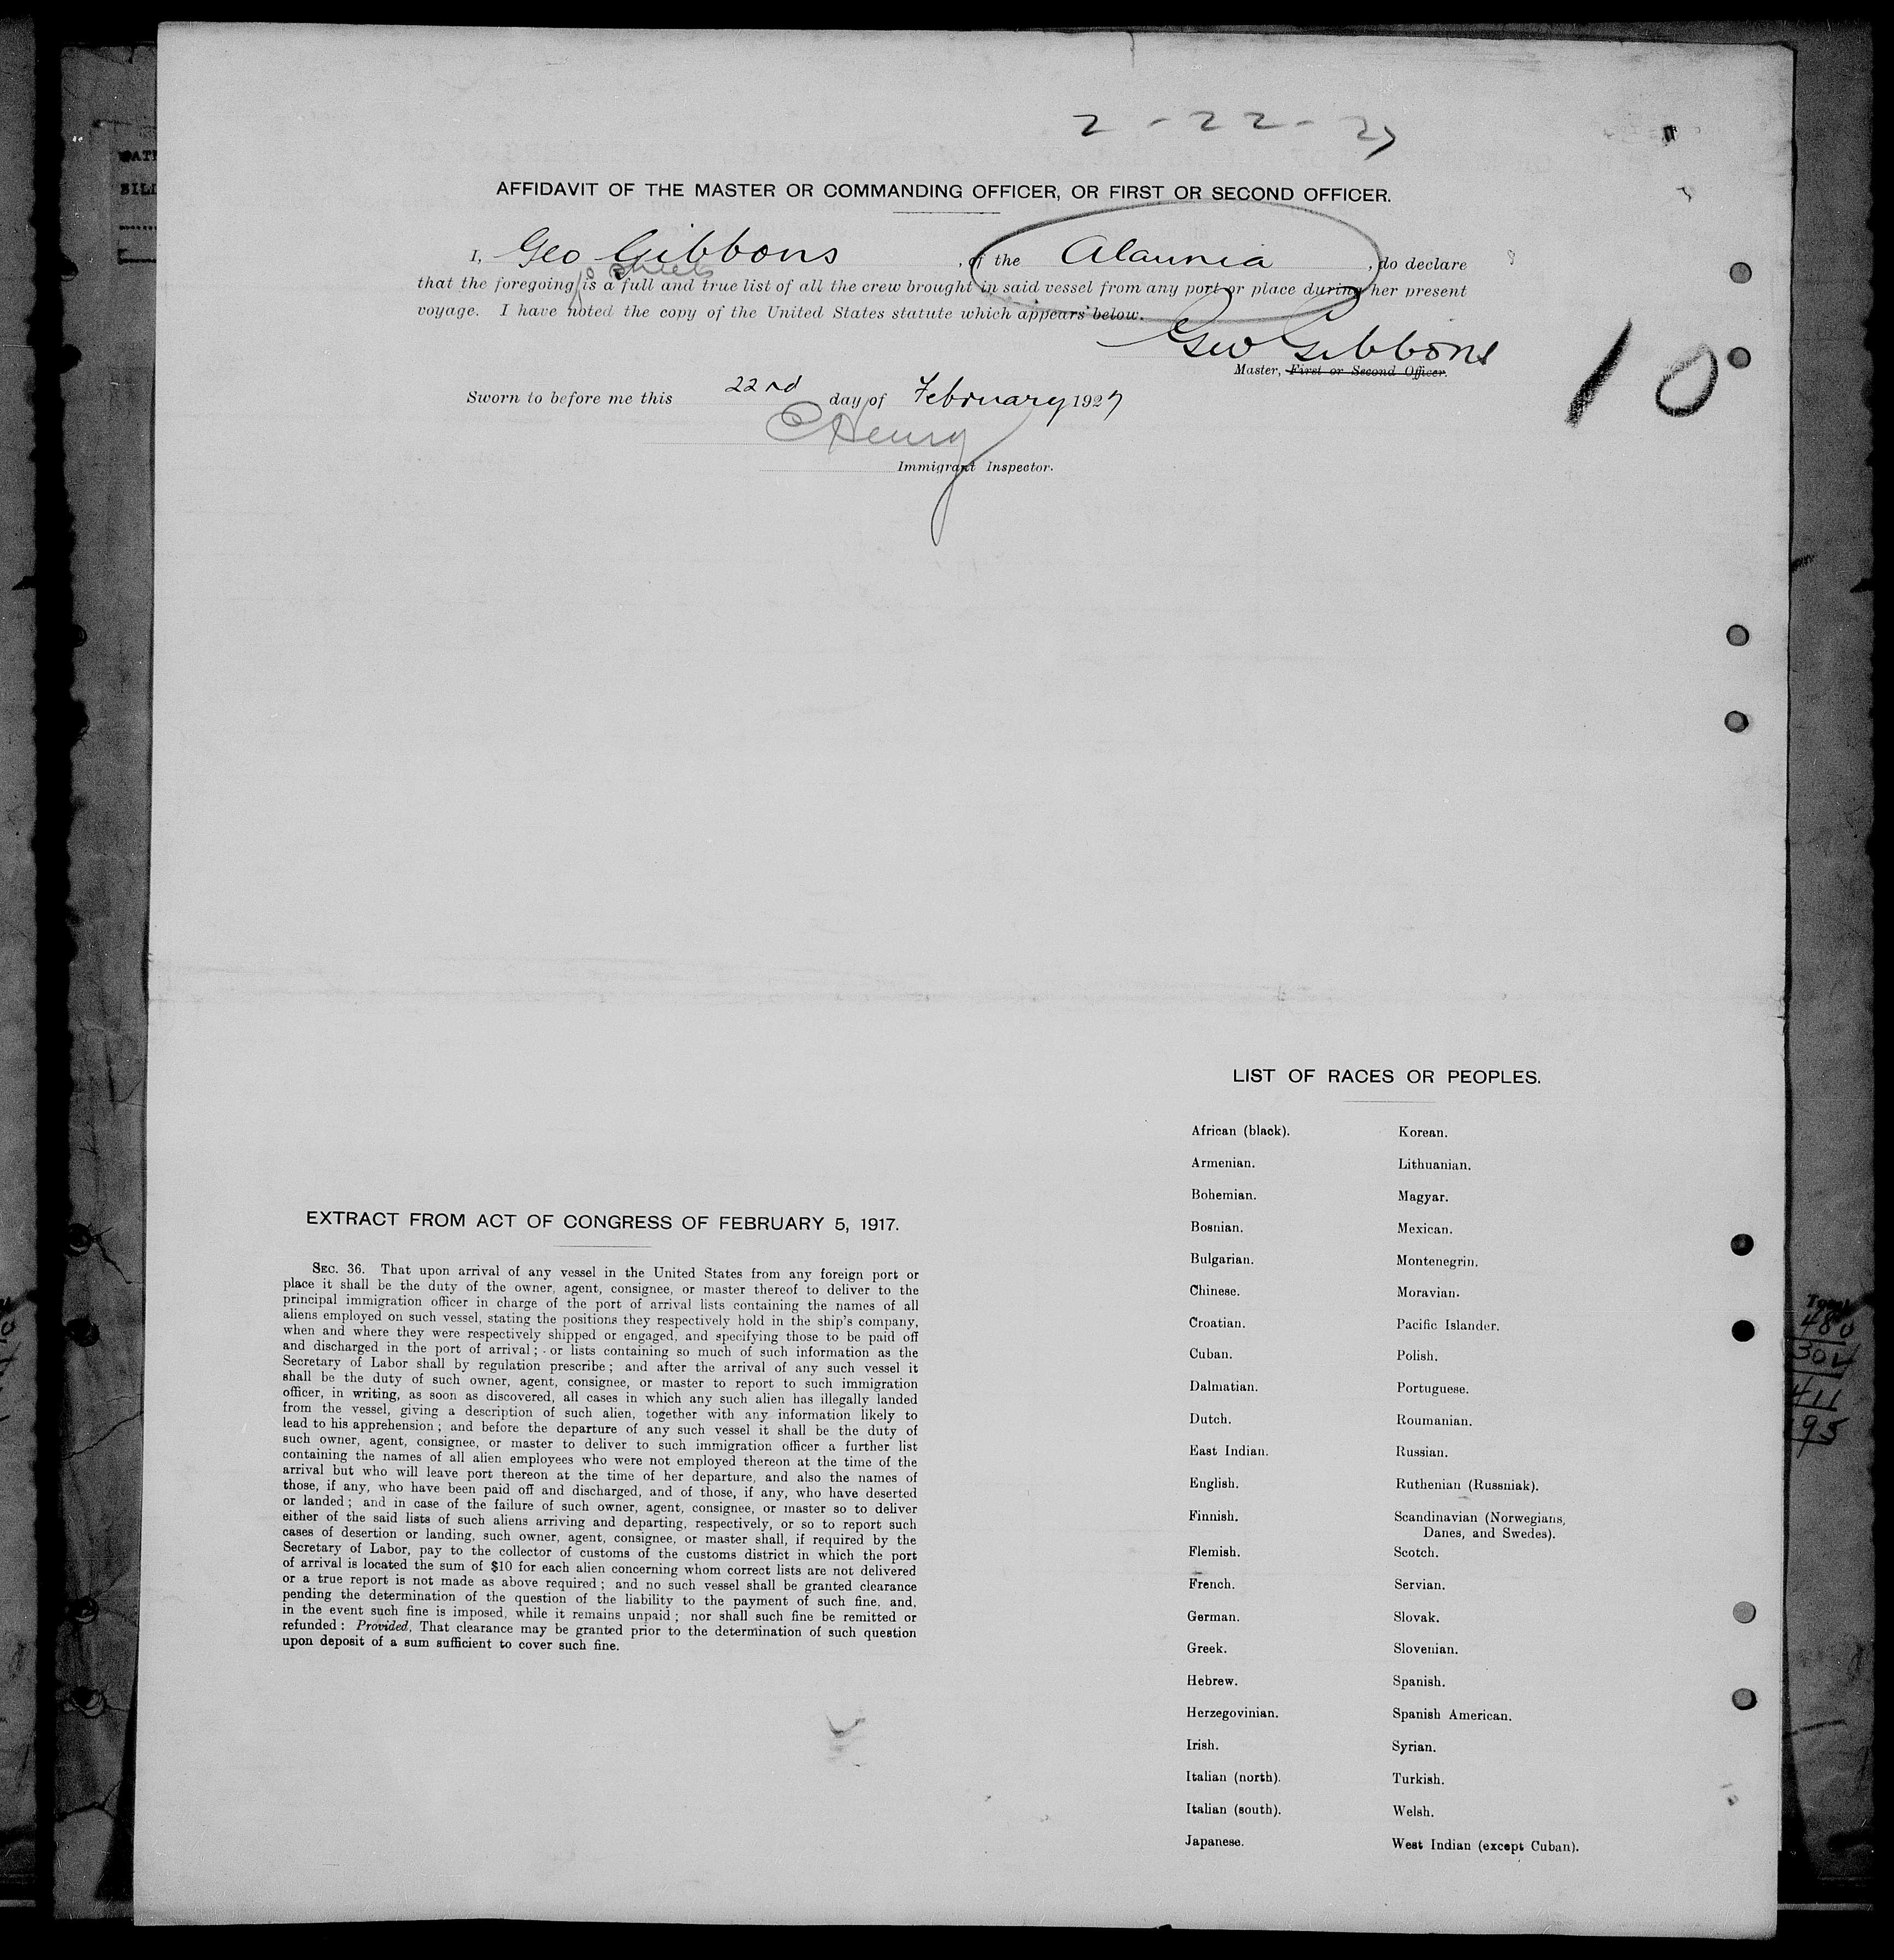 2 - 22 - 27
AFFIDAVIT OF THE MASTER OR COMMANDING OFFICER, OR FIRST OR SECOND OFFICER.
I, Geo Gibbons, of the Alaunia, do declare
10 sheets
that the foregoing is a full and true list of all the crew brought in said vessel from any port or place during her present
voyage. I have noted the copy of the United States statute which appears below.
Geo Gibbons
Master, First or Second Officer.
10
Sworn to before me this 22nd day of February 1927
CHenry
Immigrant Inspector.
EXTRACT FROM ACT OF CONGRESS OF FEBRUARY 5, 1917.
SEC. 36. That upon arrival of any vessel in the United States from any foreign port or
place it shall be the duty of the owner, agent, consignee, or master thereof to deliver to the
principal immigration officer in charge of the port of arrival lists containing the names of all
aliens employed on such vessel, stating the positions they respectively hold in the ship's company,
when and where they were respectively shipped or engaged, and specifying those to be paid off
and discharged in the port of arrival; or lists containing so much of such information as the
Secretary of Labor shall by regulation prescribe; and after the arrival of any such vessel it
shall be the duty of such owner, agent, consignee, or master to report to such immigration
officer, in writing, as soon as discovered, all cases in which any such alien has illegally landed
from the vessel, giving a description of such alien, together with any information likely to
lead to his apprehension; and before the departure of any such vessel it shall be the duty of
such owner, agent, consignee, or master to deliver to such immigration officer a further list
containing the names of all alien employees who were not employed thereon at the time of the
arrival but who will leave port thereon at the time of her departure, and also the names of
those, if any, who have been paid off and discharged, and of those, if any, who have deserted
or landed; and in case of the failure of such owner, agent, consignee, or master so to deliver
either of the said lists of such aliens arriving and departing, respectively, or so to report such
cases of desertion or landing, such owner, agent, consignee, or master shall, if required by the
Secretary of Labor, pay to the collector of customs of the customs district in which the port
of arrival is located the sum of $10 for each alien concerning whom correct lists are not delivered
or a true report is not made as above required; and no such vessel shall be granted clearance
pending the determination of the question of the liability to the payment of such fine, and,
in the event such fine is imposed, while it remains unpaid; nor shall such fine be remitted or
refunded: Provided, That clearance may be granted prior to the determination of such question
upon deposit of a sum sufficient to cover such fine.
LIST OF RACES OR PEOPLES.
African (black).
Armenian.
Bohemian.
Bosnian.
Bulgarian.
Chinese.
Croatian.
Cuban.
Dalmatian.
Dutch.
East Indian.
English.
Finnish.
Flemish.
French.
German.
Greek.
Hebrew.
Herzegovinian.
Irish.
Italian (north).
Italian (south).
Japanese.
Korean.
Lithuanian.
Magyar.
Mexican.
Montenegrin.
Moravian.
Pacific Islander.
Polish.
Portuguese.
Roumanian.
Russian.
Ruthenian (Russniak).
Scandinavian (Norwegians,
Danes, and Swedes).
Scotch.
Servian.
Slovak.
Slovenian.
Spanish.
Spanish American.
Syrian.
Turkish.
Welsh.
West Indian (except Cuban).
Total
480
304